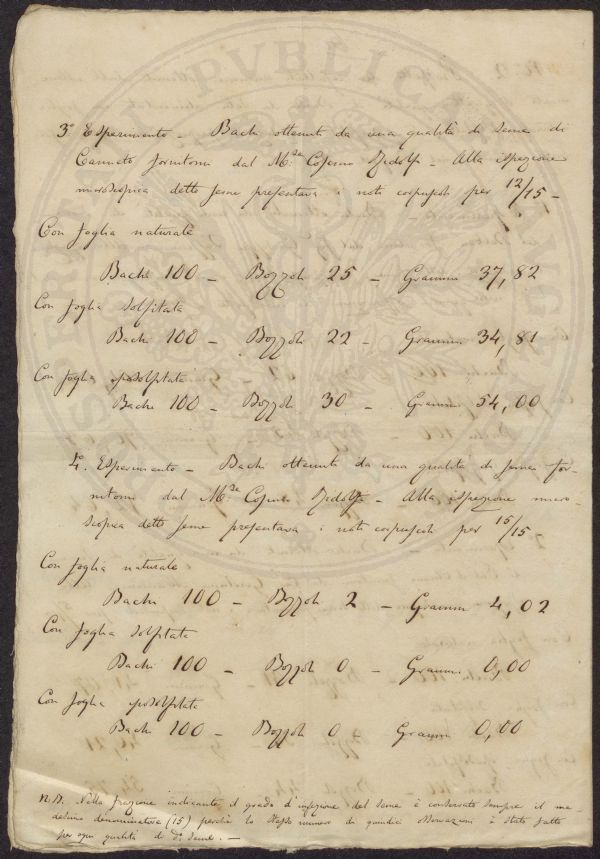 3º Esperimento - Bachi ottenuti da una qualità di seme di
Canneto fornitomi dal M:se Cosimo Ridolfi - Alla ispezione
microscopica detto seme presentava i noti corpuscoli per 12/15 -
Con foglia naturale
Bachi 100 - Bozzoli 25 - Grammi 37,82
Con foglia solfitata
Bachi 100 - Bozzoli 22 - Grammi 34,81
Con foglia iposolfitata
Bachi 100 - Bozzoli 30 - Grammi 54,00
4º. Esperimento - Bachi ottenuti da una qualità di seme for-
nitomi dal M:se Cosimo Ridolfi - Alla ispezione micro-
scopica detto seme presentava i noti corpuscoli per 15/15
Con foglia naturale
Bachi 100 - Bozzoli 2 - Grammi 4,02
Con foglia solfitata
Bachi 100 - Bozzoli 0 - Grammi 0,00
Con foglia iposolfitata
Bachi 100 - Bozzoli 0 - Grammi 0,00
N.B. Nella frazione indicante il grado d'infezione del seme è conservato sempre il me-
desimo denominatore (15) perchè lo stesso numero di quindici osservazioni è stato fatto
per ogni qualità di do. seme. -